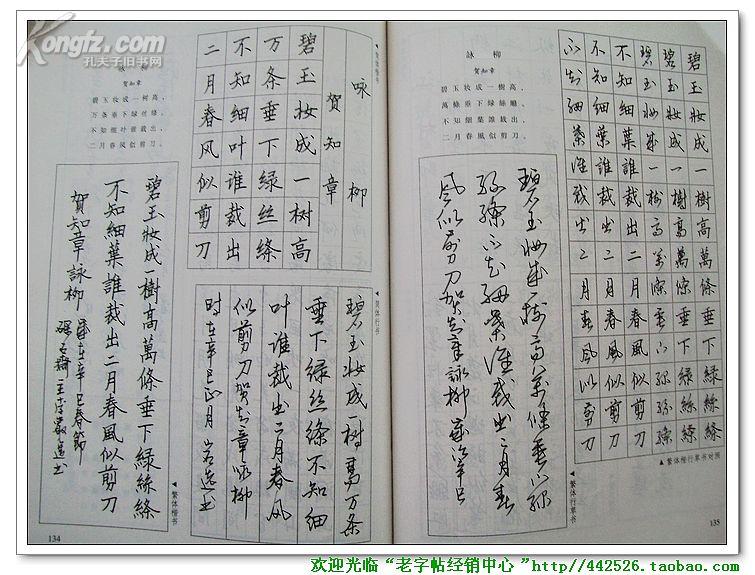 Kongfz.com
孔夫子旧书网
咏 柳
贺知章
碧玉妆成一树高，
万条垂下绿丝绦。
不知细叶谁裁出，
二月春风似剪刀。
咏柳
賀知章
碧玉妆成一树高
万条垂下绿丝绦
不知细叶谁裁出
二月春风似剪刀
▲简体楷书
碧玉妝成一樹高萬條垂下綠絲絛
不知細葉誰裁出二月春風似剪刀
賀知章詠柳
歲在辛巳春節
▲繁体楷书
碧玉妆成一树高万条
垂下绿丝绦不知细
叶谁裁出二月春风
似剪刀贺知章咏柳
时在辛巳正月岩选书
▲简体行书
134
詠 柳
賀知章
碧玉妝成一樹高，
萬條垂下綠絲絛。
不知細葉誰裁出，
二月春風似剪刀。
碧玉妝成一樹高萬條垂下綠絲絛
碧玉妝成一樹高萬條垂下綠絲絛
碧玉妝成一樹高萬條垂下綠絲絛
不知細葉誰裁出二月春風似剪刀
不知細葉誰裁出二月春風似剪刀
不知細葉誰裁出二月春風似剪刀
▲繁体楷行草书对照
碧玉妝成一樹高萬條垂下綠
絲絛不知細葉誰裁出二月春
風似剪刀賀知章詠柳
▲繁体行草书
135
欢迎光临“老字帖经销中心”http://442526.taobao.com